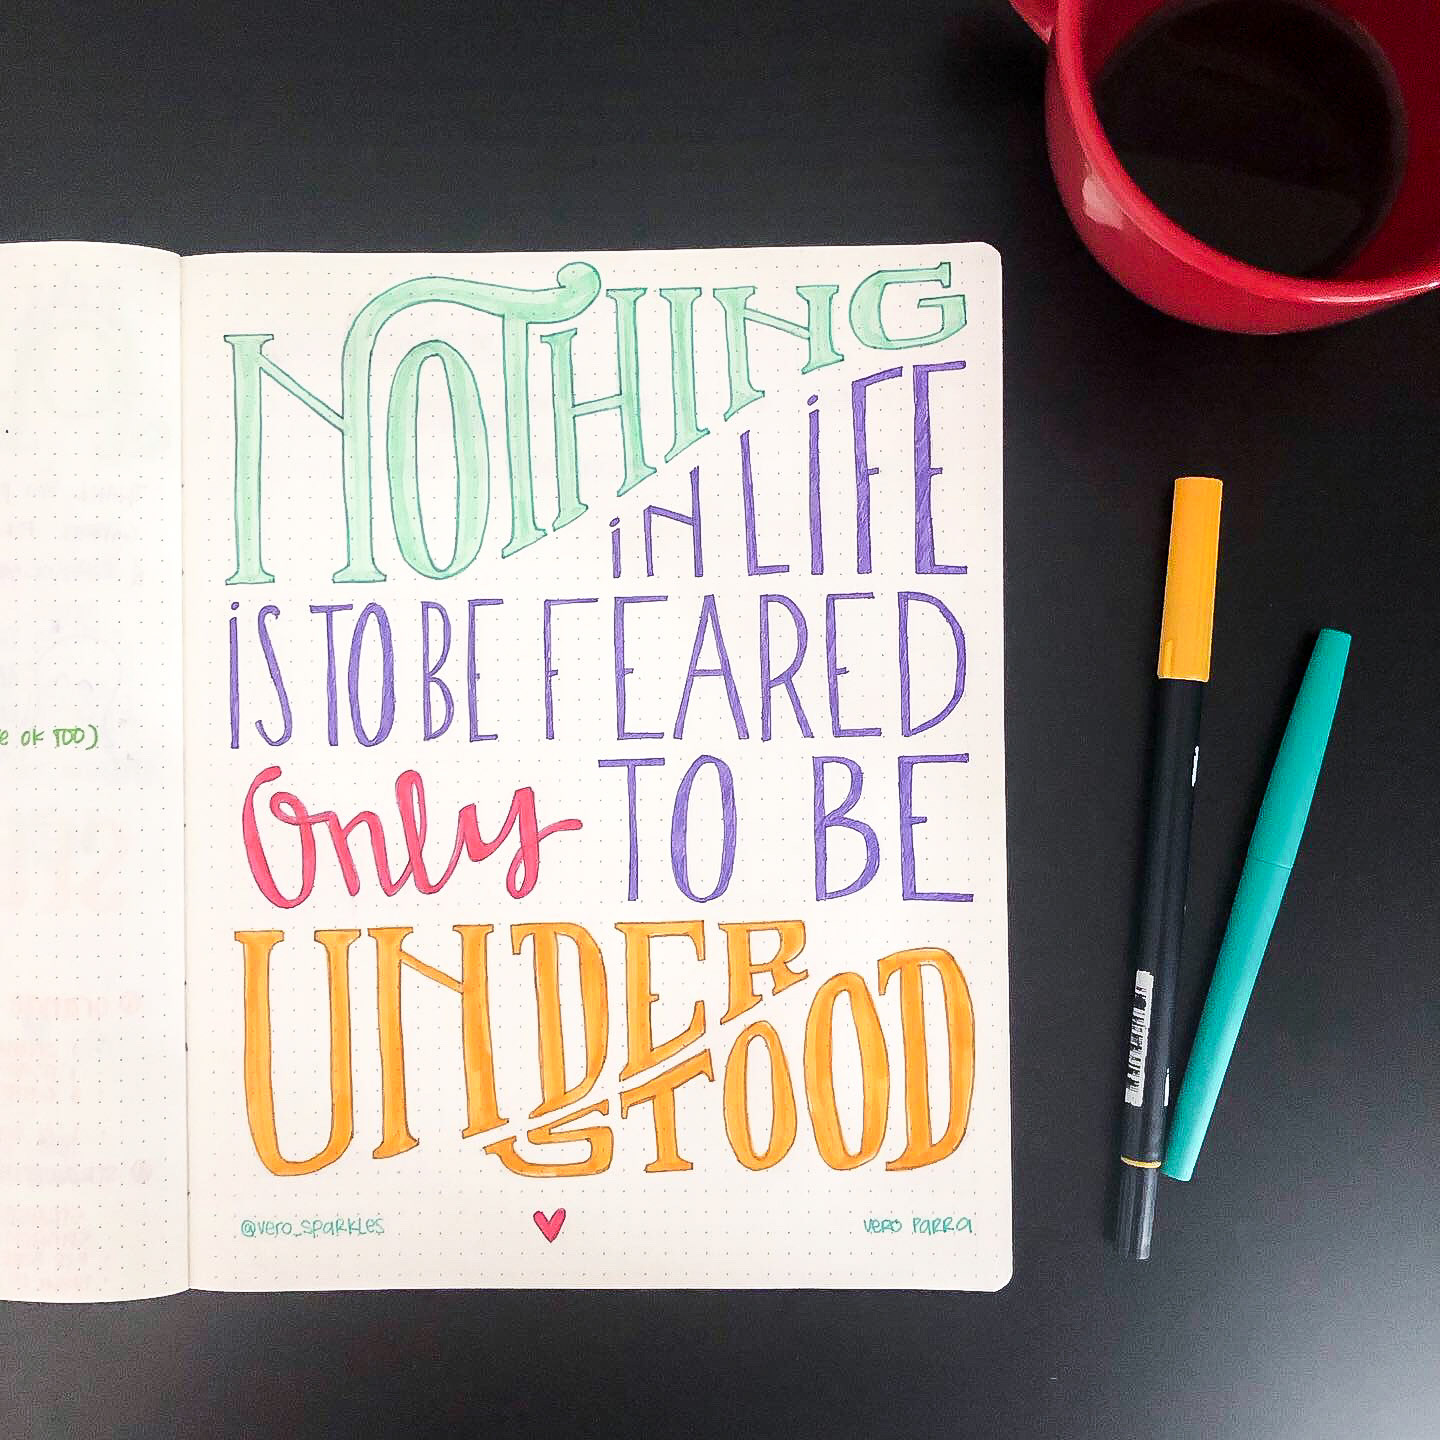 NOTHING
iN LiFE
iS TO BE FEARED
Only TO BE
UNDER
STOOD
@vero_sparkles
VERO PARRA
ok TOO)